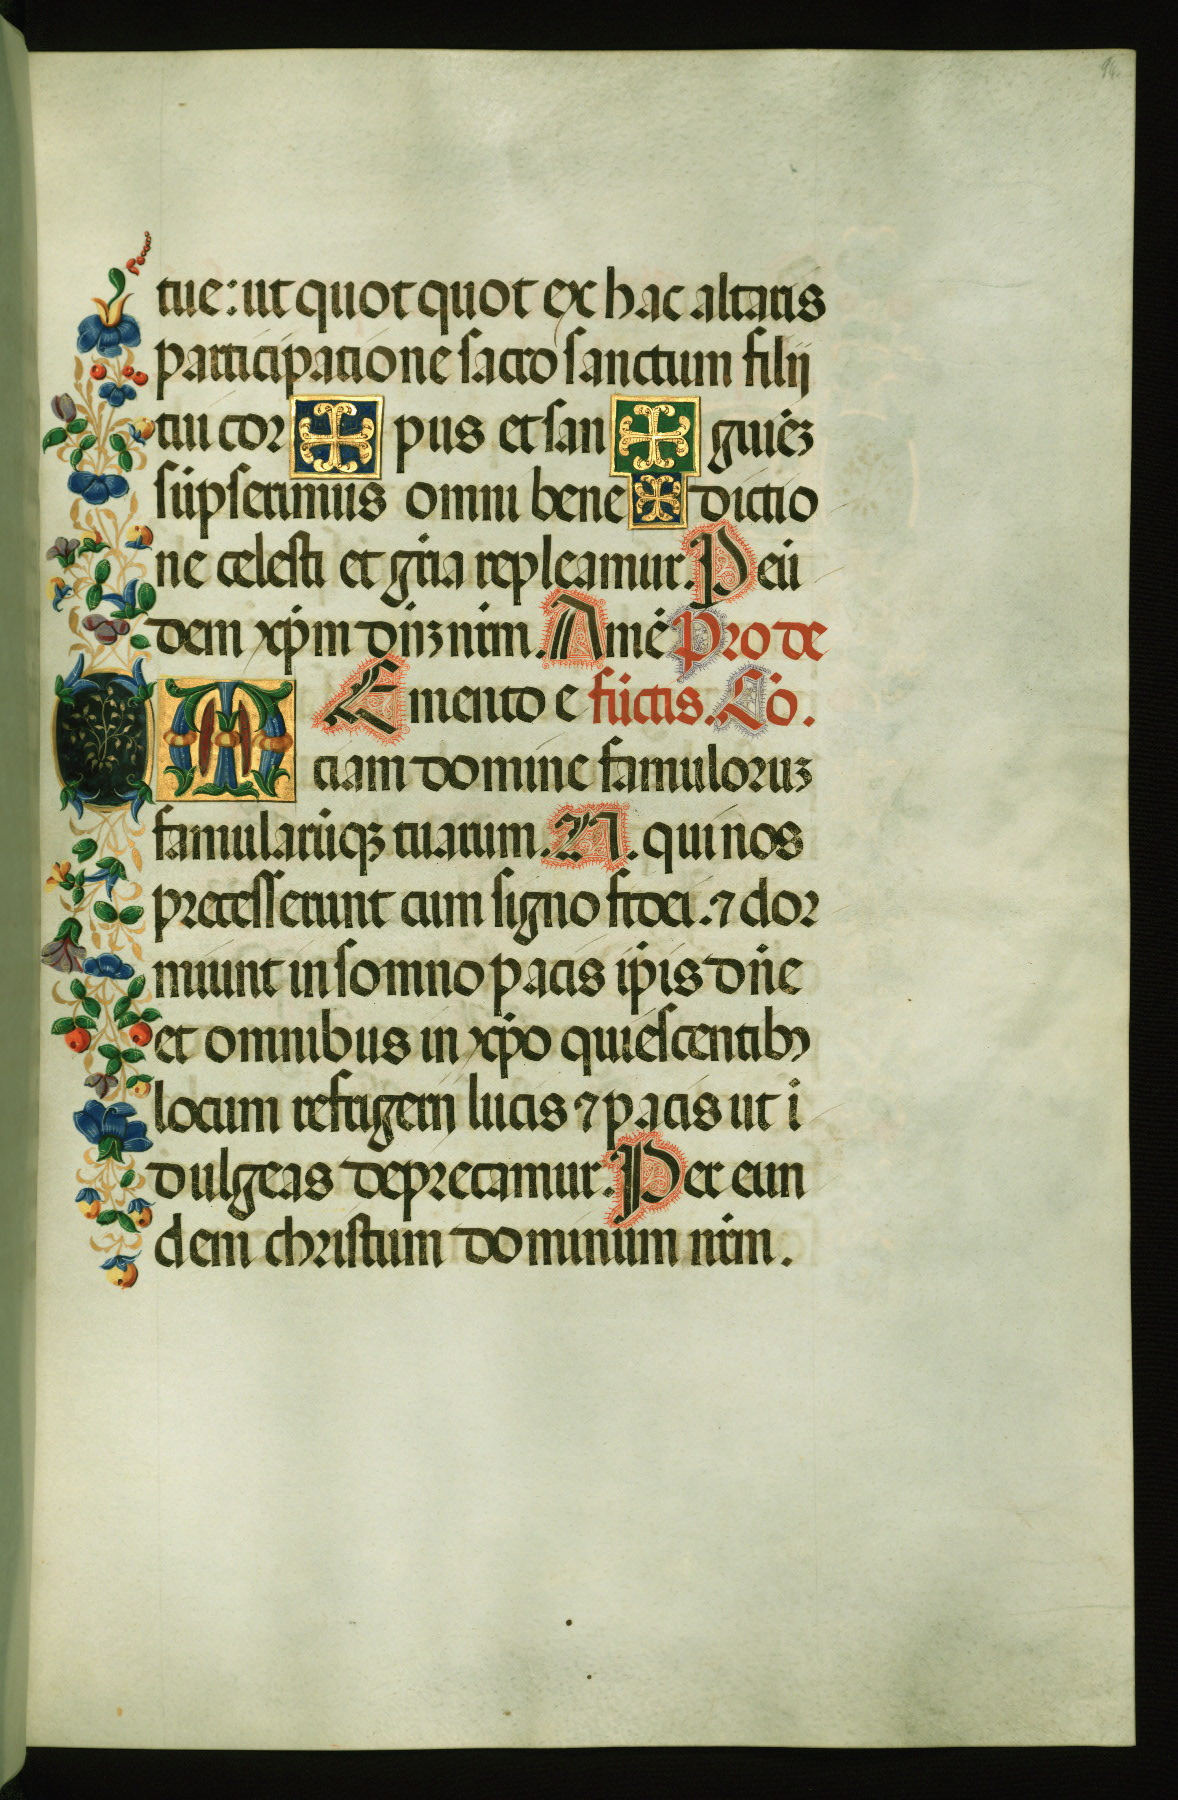 tue: ut quot quot ex hac altaris
participatione sacro sanctum filij
tui cor ✠ pus et san ✠ guinẽ
sũpserimus omni bene ✠ dictio
ne celesti et grãa repleamur. Per eũ
dem xp̃m dñm nrm. Amẽ Pro de
M Emento e fũctis. Cõ.
ciam domine famuloruʒ
famularũqʒ tuarum. N. qui nos
precesserunt cum signo fidei. ⁊ dor
miunt in somno pacis ip̃is dñe
et omnibus in xp̃o quiescentibꝰ
locum refrigerij lucis ⁊ pacis ut ĩ
dulgeas deprecamur. Per eun
dem christum dominum nrm.